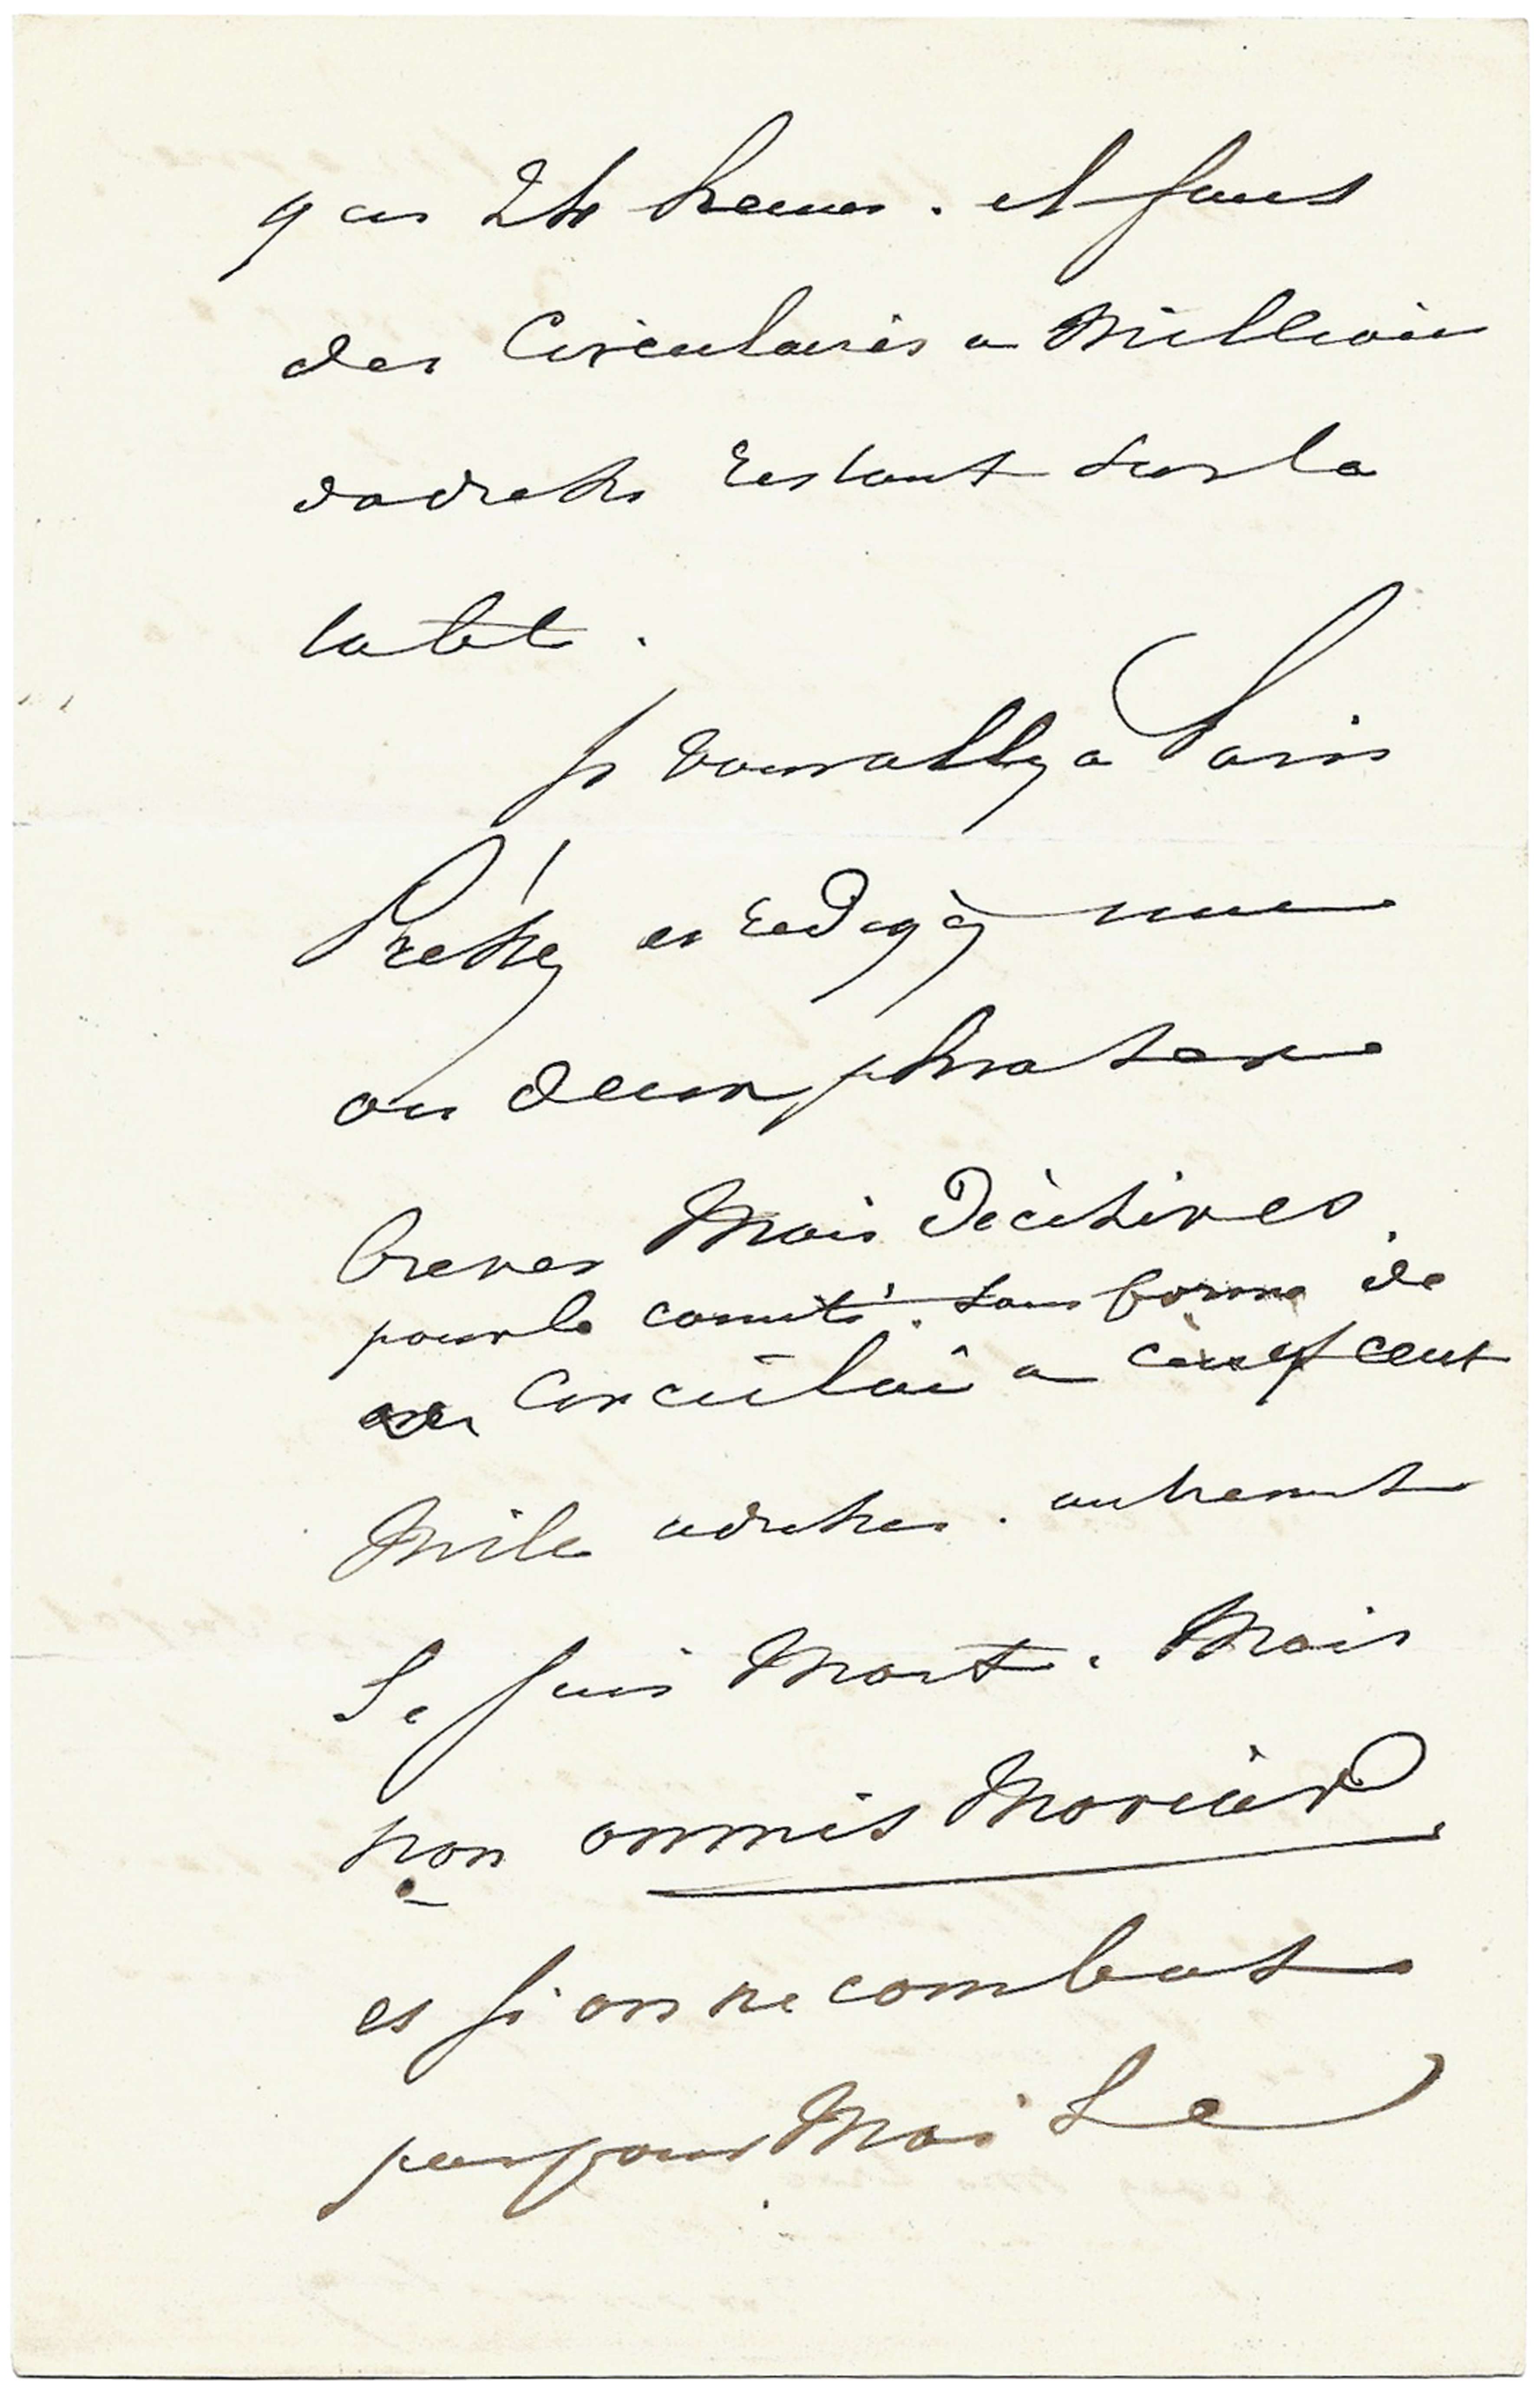 que 24 heures. il faut
des Circulaires a Million
dadresses restant sur la
table.
Si vous allez a Paris
Pressez et redigez une
ou deux phrases
breves Mais Décisives
pour le comité. sous forme de
Circulaire a cinq cent
Mille adresses. autrement
Je suis Mort. Mais
non omnis Moriar
et si on ne combat
pas pour Moi Le